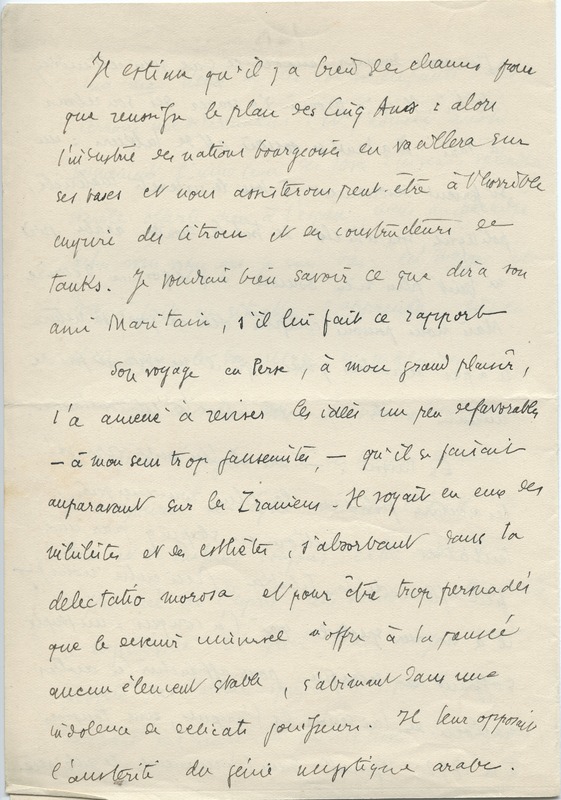 Il estime qu'il y a bien des chances pour
que réussisse le plan des Cinq Ans : alors
l'industrie des nations bourgeoises en vacillera sur
ses bases et nous assisterons peut-être à l'horrible
des Citroen et des constructeurs de
tanks. Je voudrais bien savoir ce que dira son
ami Maritain, s'il lui fait ce rapport
Son voyage en Perse, à mon grand plaisir,
l'a amené à reviser les idées un peu défavorables
— à mon sens trop jansenistes, — qu'il se faisait
auparavant sur les Iraniens. Il voyait en eux des
nihilistes et des esthètes, s'absorbant dans la
delectatio morosa et pour être trop persuadés
que le devenir universel n'offre à la pensée
aucun élément stable, s'abimant dans une
indolence de délicats jouisseurs. Il leur opposait
l'austérité du génie mystique arabe.